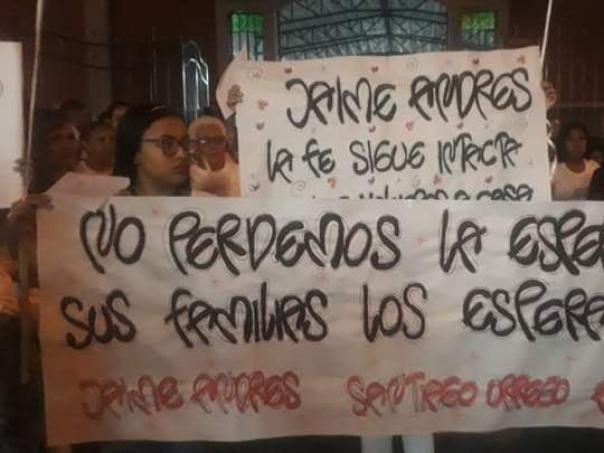 JAIME ANDRES
LA FE SIGUE INTACTA
a casa
NO PERDEMOS LA ESPE
SUS FAMILIAS LOS ESPERA
JAIME ANDRES SANTIAGO URREGO